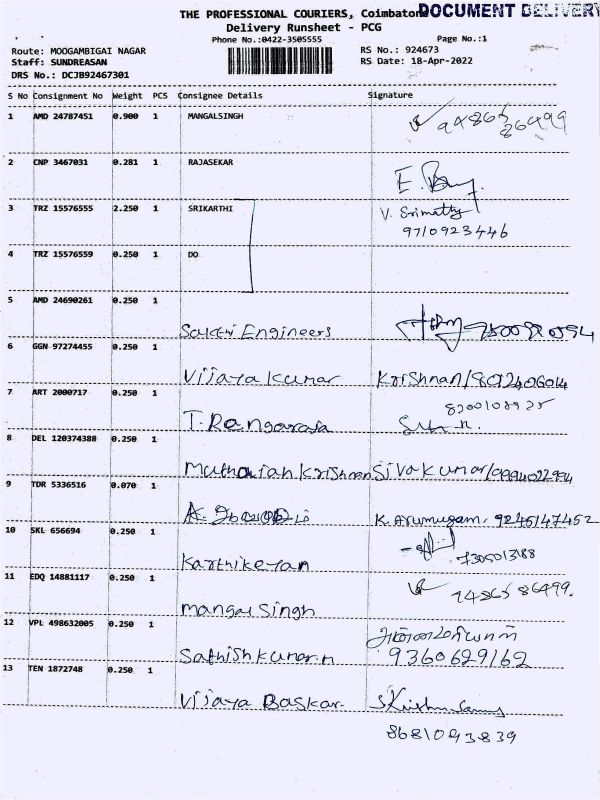 THE PROFESSIONAL COURIERS, Coimbatore DOCUMENT DELIVERY
Delivery Runsheet - PCG
Phone No.:0422-3505555 Page No.:1
Route: MOOGAMBIGAI NAGAR RS No.: 924673
Staff: SUNDREASAN RS Date: 18-Apr-2022
DRS No.: DCJB92467301
S No Consignment No Weight PCS Consignee Details Signature
1 AMD 24787451 0.900 1 MANGALSINGH
2 CNP 3467031 0.281 1 RAJASEKAR
3 TRZ 15576555 2.250 1 SRIKARTHI V. Srimathy
9710923446
4 TRZ 15576559 0.250 1 DO
5 AMD 24690261 0.250 1
Sakthi Engineers
6 GGN 97274455 0.250 1
Vijaya kumar Krishnan/8012406014
7 ART 2000717 0.250 1
T. Rangaraja
8 DEL 120374388 0.250 1
Krishnan Sivakumar/
9 TDR 5336516 0.070 1
K. Arumugam. 9245147452
10 SKL 656694 0.250 1
Karthikeyan 7305013188
11 EDQ 14881117 0.250 1
mangal Singh
12 VPL 498632005 0.250 1
Sathish kumar.n 9360629162
13 TEN 1872748 0.250 1
Vijaya Baskar.
8681093839